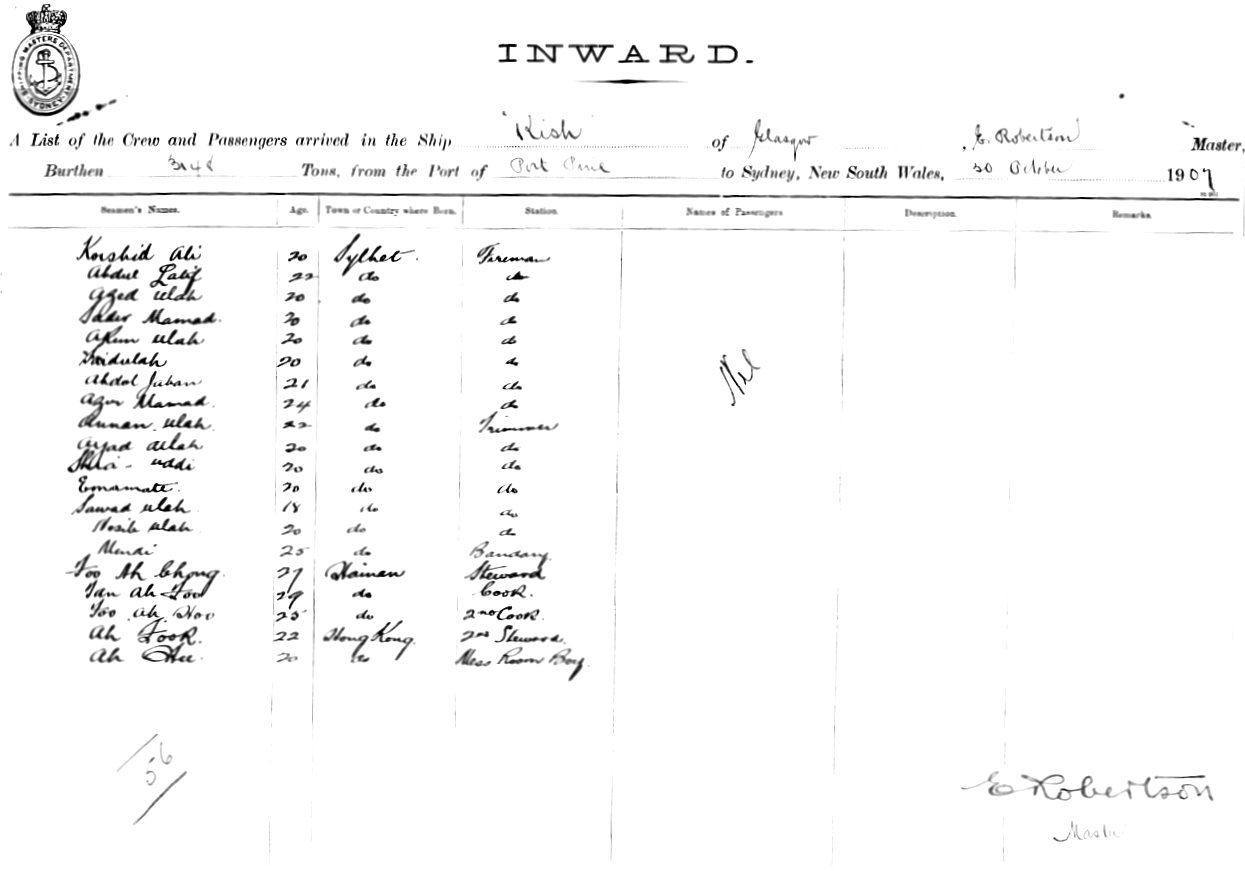 SHIPPING MASTERS DEPARTMENT SYDNEY
INWARD.
A List of the Crew and Passengers arrived in the Ship "Kish" of Glasgow, E. Robertson Master,
Burthen Tons, from the Port of Port Pirie to Sydney, New South Wales, 30 October 1907
Seamen's Names. Age. Town or Country where Born. Station. Names of Passengers Description. Remarks.
Korshid Ali 20 Sylhet. Fireman
Abdul Latif 22 do do
Azed Ulah 20 do do
Mamad. 20 do do
Ulah 20 do do
20 do do
Abdol Juban 21 do do
Mamad. 24 do do
Ulah 22 do Trimmer
20 do do
uddi 20 do do
20 do do
Sawad Ulah 18 do do
Nosib Ulah 20 do do
25 do
Nil
Foo Ah Chong. 27 Hainan Steward
Ah Foo 29 do Cook.
Foo Ah Hoo 25 do 2nd Cook.
Ah Fook. 22 Hong Kong. 2nd Steward.
Ah 20 do Mess Room Boy.
E Robertson
Master